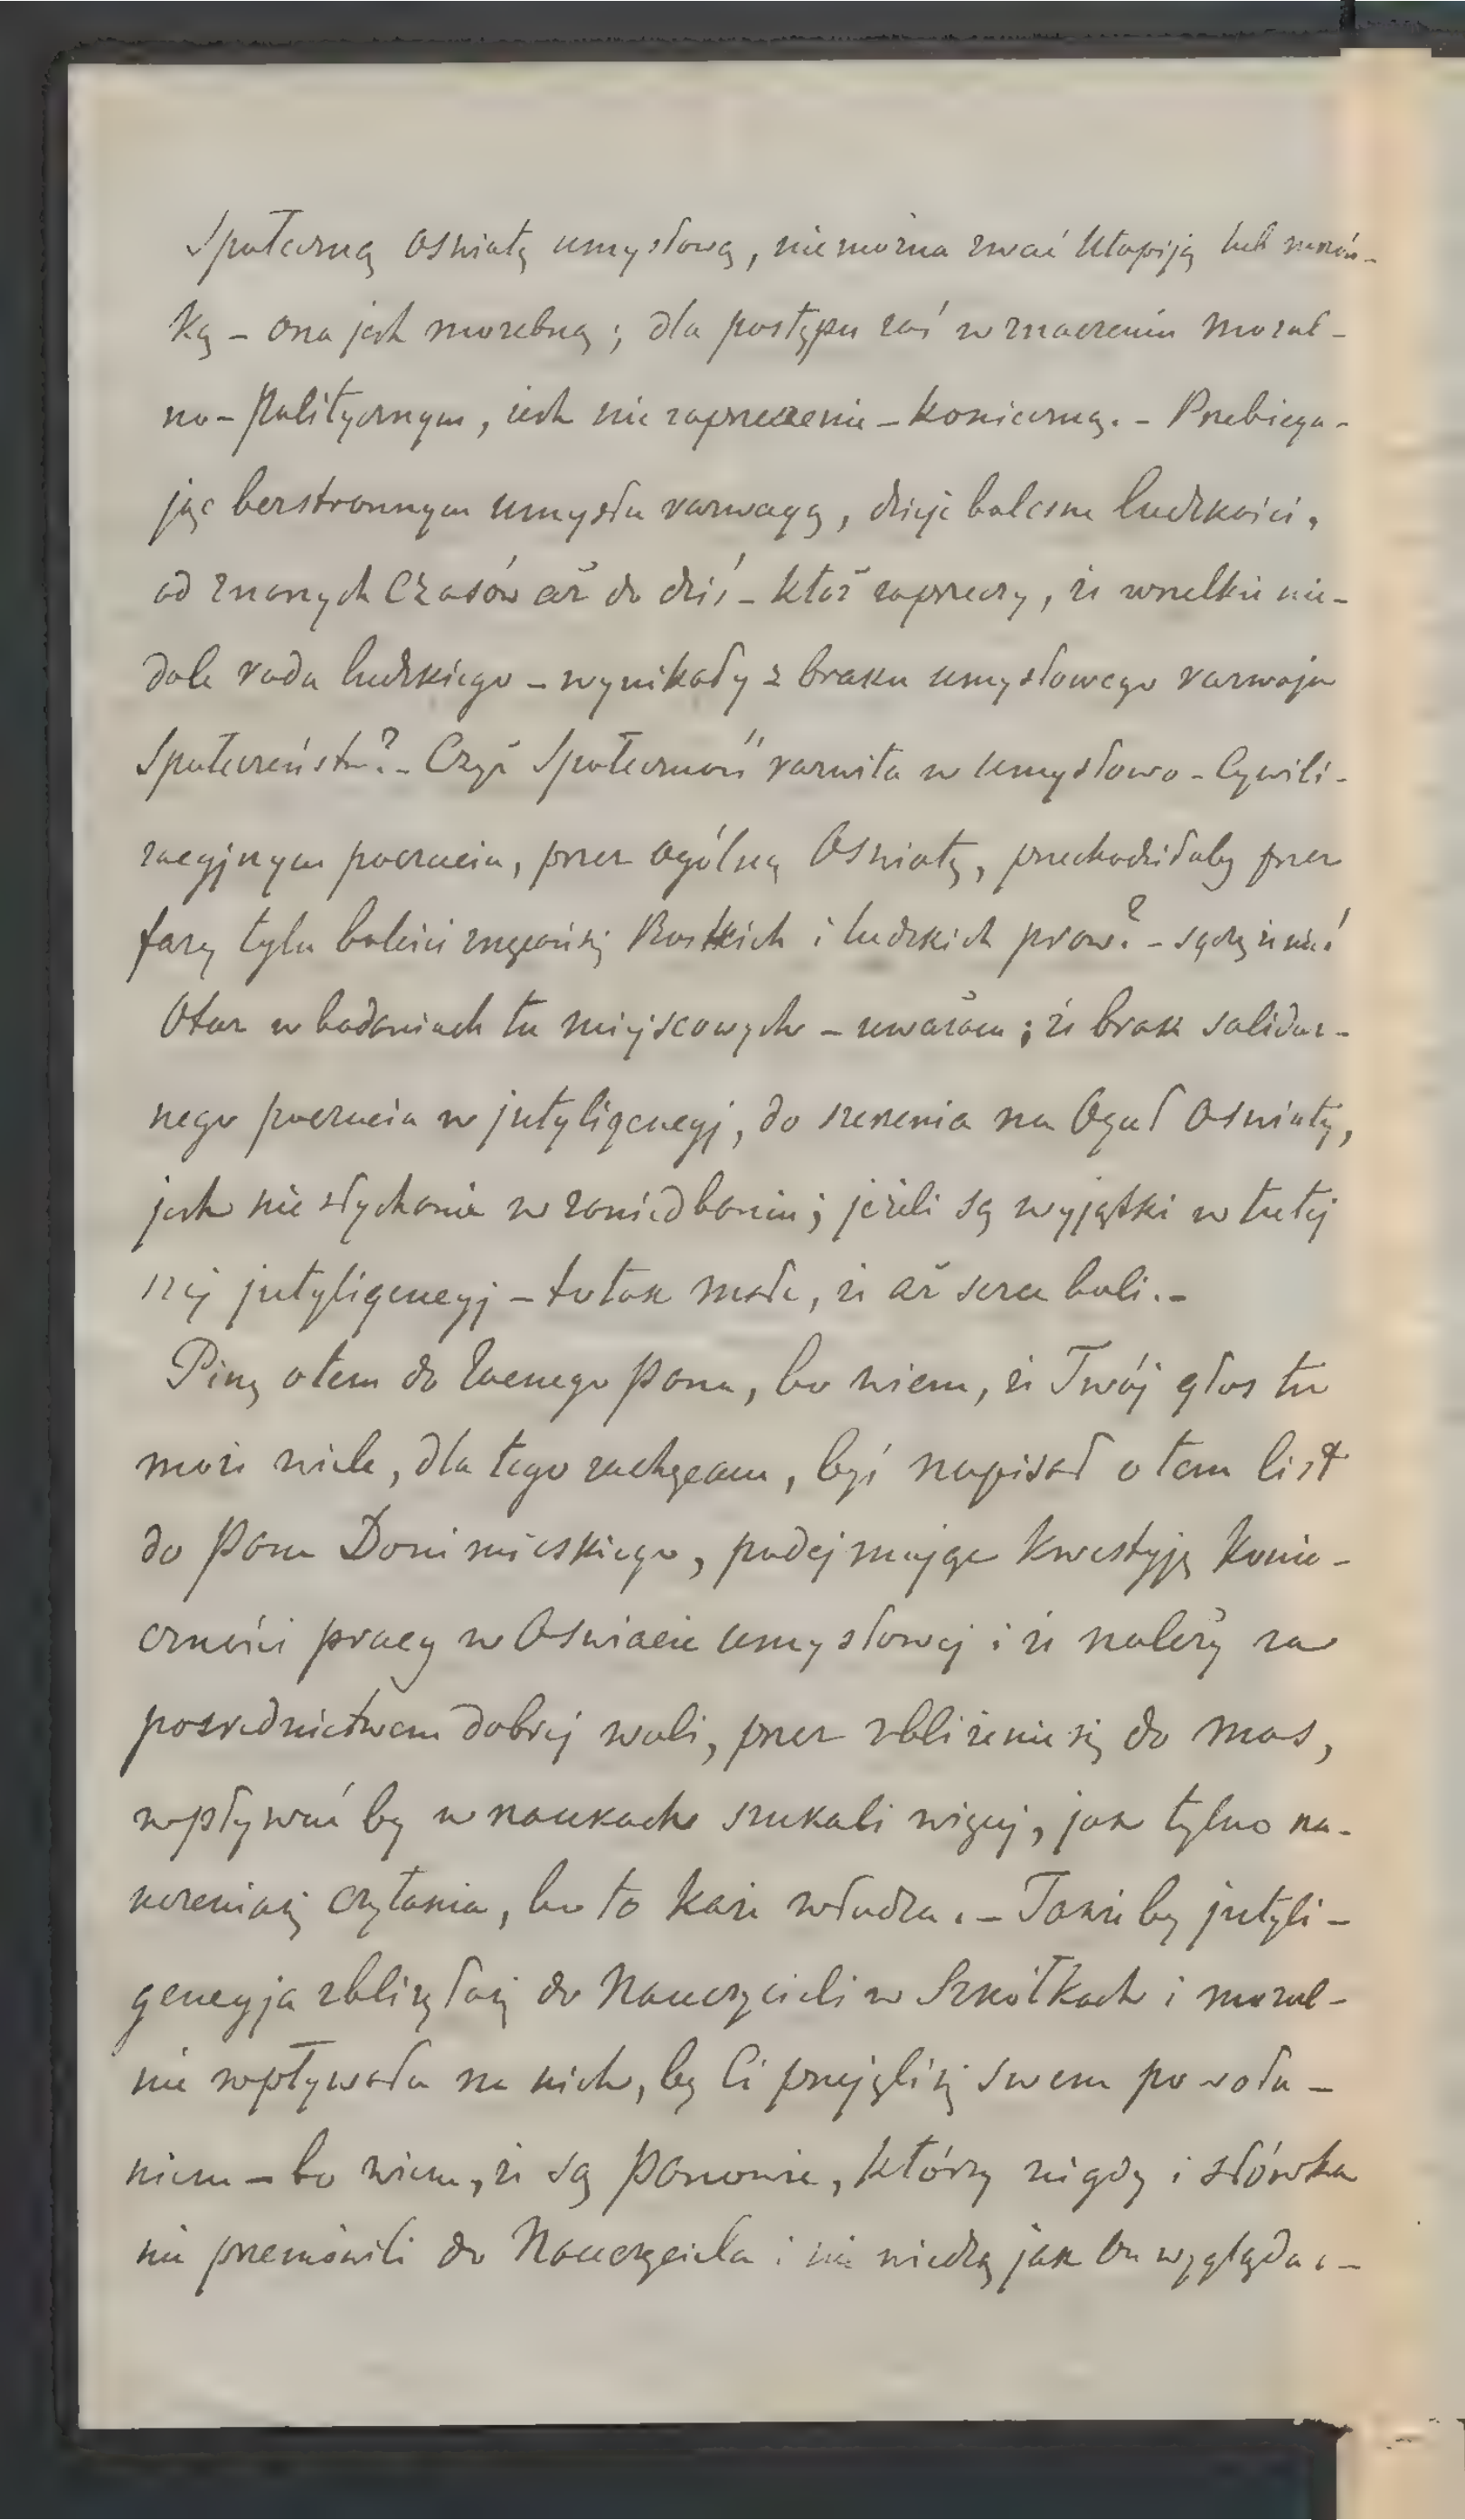 Społeczną Oswiatę umysłową, nie można zwać Utopiją lub mrzon-
ką – ona jest możebną; dla postępu zaś w znaczeniu moral-
no-Politycznym, jest nie zaprzeczenie – konieczną. – Przebiega-
jąc bezstronnym umysłu rozwagą, dzieje bolesne ludzkości,
od znanych Czasów aż do dziś – któż zaprzeczy, że wszelkie nie-
dole rodu ludzkiego – wynikały z braku umysłowego rozwoju
Społeczeństw? – Czyż Społeczność rozwita w umysłowo-Cywili-
zacyjnym poczucia, przez ogólną Oswiatę, przechodziłaby przez
fazy tylu boleści Boskich i ludzkich praw? – sądzę że nie!
Otoż w badaniach tu miejscowych – uważam; że brak solidar-
nego poczucia w jntyligencyj, do szerzenia na Oguł Oswiaty,
jest nie słychanie w zaniedbaniu; jeżeli są wyjątki w tutej
szej jntyligencyj – to tak małe, że aż serce boli. –
Piszę o tem do Zacnego Pana, bo wiem, że Twój głos tu
może wiele, dla tego zachęcam, byś napisał o tem list
do Pana Donimirskiego, podejmując kwestyję konie-
czności pracy w Oswiacie umysłowej i że należy za
posrednictwem dobrej woli, przez zbliżenie się do mas,
wpływać by w naukach szukali więcej, jak tylko na-
uczenia się czytania, bo to każe władza. – Także by jntyli-
gencyja zbliżyła się do Nauczycieli w Szkółkach i moral-
nie wpływała na nich, by Ci przejęli się swem powoła-
niem – bo wiem, że są Panowie, którzy nigdy i słówka
nie przemówili do Nauczyciela i nie wiedzą jak On wygląda. –